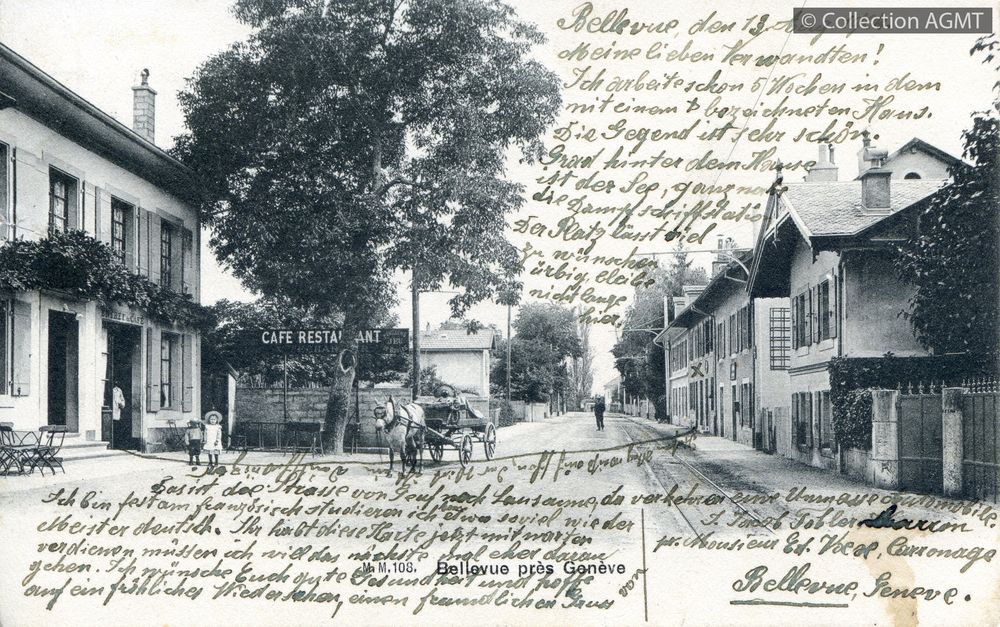 © Collection AGMT
Bellevue, den 13.
Meine lieben Verwandten!
Ich arbeite schon 5 Wochen in dem
mit einem bezeichneten Haus.
Die Gegend ist sehr schön.
Grad hinter dem Hause
ist der See, ganz
die Dampfschiffstatio
Der Platz lässt viel
zu wünschen
übrig bleibe
nicht lange
hier,
CAFÉ RESTAURANT
Es ist die Strasse von Genf nach Lausanne, da verkehren eine Unmasse Automobile,
Ich bin fest am französisch studieren ich etwa soviel wie der
Meister deutsch. Ihr habt diese Karte jetzt mit warten
verdienen müssen ich will das nächste mal eher daran
gehen. Ich wünsche Euch gute Gesundheit und hoffe
auf ein fröhliches Wiedersehen, einen freundlichen Gruss
M. M. 108. Bellevue près Genève
J. Jacob Tobler
pr. Monsieur Ed.
Bellevue, Geneve.